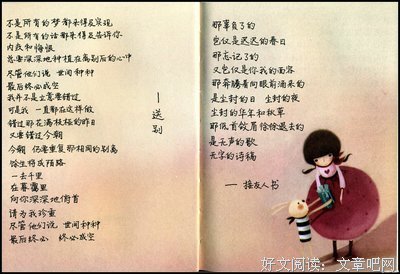 不是所有的梦都来得及实现
不是所有的话都来得及告诉你
内疚和悔恨
总要深深地种植在离别后的心中
尽管他们说 世间种种
最后终必成空
我并不是立意要错过
可是我 一直都在这样做
错过那花满枝桠的昨日
又要错过今朝
今朝 仍要重复那相同的别离
余生将成陌路
一去千里
在暮霭里
向你深深地俯首
请为我珍重
尽管他们说 世间种种
最后终必 终必成空
—送别
那辜负了的
岂仅是迟迟的春日
那忘记了的
又岂仅是你我的面容
那奔腾着向眼前涌来的
是尘封的日 尘封的夜
尘封的华年和秋草
那低首敛眉徐徐退去的
是无声的歌
无字的诗稿
—接友人书
好文阅读：文章吧网